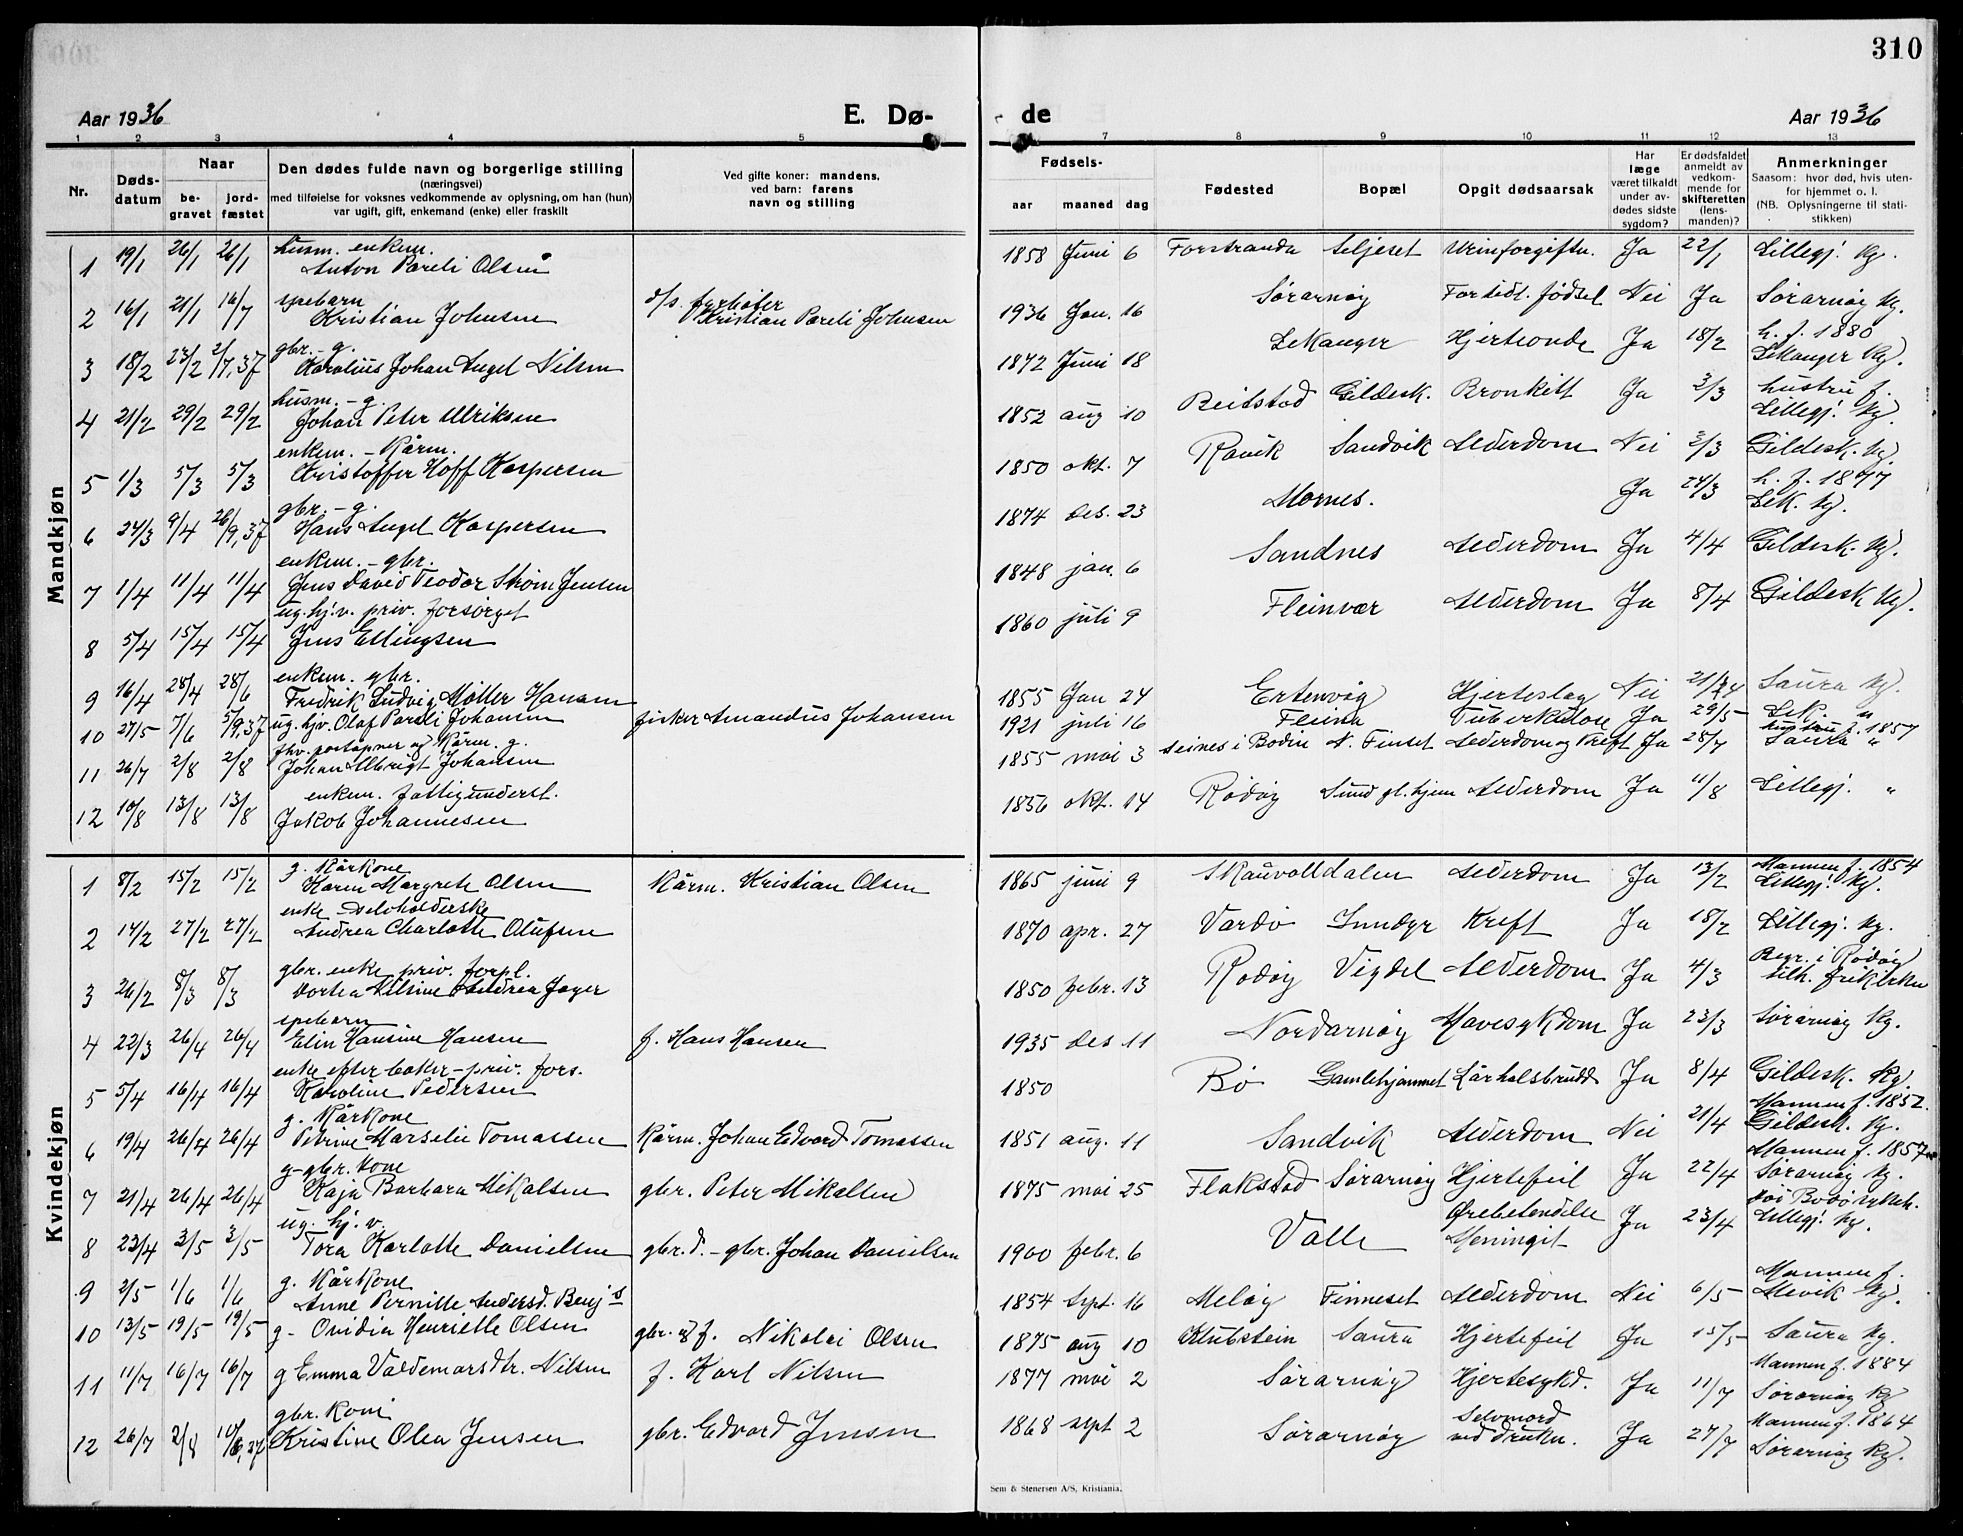 310
Aar 1936 E. Dø- de Aar 1936
1 2 3 4 5 7 8 9 10 11 12 13
Nr. Døds-datum Naar be-gravet jord-fæstet
Den dødes fulde navn og borgerlige stilling
(næringsvei)
med tilføielse for voksnes vedkommende av oplysning, om han (hun)
var ugift, gift, enkemand (enke) eller fraskilt
Ved gifte koner: mandens,
ved barn: farens
navn og stilling
Fødsels- aar maaned dag
Fødested Bopæl Opgit dødsaarsak
Har læge været tilkaldt under av-dødes sidste sygdom?
Er dødsfaldet anmeldt av vedkom-mende for skifteretten (lens-manden)?
Anmerkninger
Saasom: hvor død, hvis uten-for hjemmet o. l.
(NB. Oplysningerne til stati-stikken)
Mandkjøn
husm. enkem.
1 19/1 26/1 26/1 Anton Pareli Olsen 1858 Juni 6 Forstranda Seljeset Urinforgiftn. Ja 22/1 Lillegj. kg.
spebarn
2 16/1 21/1 16/7 Kristian Johnsen d/s. fyrbøter Kristian Pareli Johnsen 1936 Jan. 16 Sørarnøy For tidl. fødsel Nei Ja Sørarnøy kg.
gbr. - g.
3 18/2 23/2 2/7, 37 Karolius Johan Angel Nilsen 1872 Juni 18 Lekanger Hjerteonde Ja 18/2 h. f. 1880 Lekanger kg.
husm. - g.
4 21/2 29/2 29/2 Johan Peter Ulriksen 1852 aug 10 Beitstad Gildesk. Bronkitt Ja 3/3 hustru f. Lillegj. kg.
enkem. - kårm.
5 1/3 5/3 5/3 Kristoffer Hoff Kaspersen 1850 okt. 7 Ravik Sandvik Alderdom Nei 3/3 Gildesk. kg.
gbr. - g.
6 24/3 9/4 26/9, 37 Hans Angel Kaspersen 1874 des. 23 Mornes. Ja 24/3 h. f. 1877 Lek. kg.
enkem. - gbr.
7 1/4 11/4 11/4 Jens David Teodor Strøm Jensen 1848 jan. 6 Sandnes Alderdom Ja 4/4 Gildesk. kg.
ug. hj. v. priv. forsørget
8 5/4 15/4 15/4 Jens Ellingsen 1860 juli 9 Fleinvær Alderdom Ja 8/4 Gildesk kg.
enkem. gbr.
9 16/4 28/4 28/6 Fredrik Ludvig Møller Hansen 1855 Jan 24 Ertenvåg Hjerteslag Nei Saura kg.
10 27/5 7/6 5/9, 37 ug. hjv. Olaf Pareli Johansen fisker Amandus Johansen 1921 juli 16 Fleina Tuberkulose Ja 29/5 Lek. "
fhv. postapner og kårm. g.
11 26/7 2/8 2/8 Johan Albrigt Johansen 1855 mai 3 Seines i Bodin N. Finset Alderdom og Kreft Ja 28/7 hustru f. 1857 Saura "
enkem. fattigunderst.
12 10/8 13/8 13/8 Jakob Johannesen 1856 okt. 14 Rødøy Sund gl. hjem Alderdom Ja 11/8 Lillegj. "
Kvindekjøn
g. kårkone
1 8/2 15/2 15/2 Karen Margrete Olsen kårm. Kristian Olsen 1865 juni 9 Skauvolldalen Alderdom Ja 13/2 Mannen f. 1854 Lillegj. kg.
enke - selvholderske
2 14/2 27/2 27/2 Andrea Charlotte Olufsen 1870 apr. 27 Vardø Inndyr Kreft Ja 18/2 Lillegj. kg.
gbr. enke priv. forpl.
3 26/2 8/3 8/3 Dortea Nilsine Andrea Jager 1850 febr. 13 Rødøy Vigdel Alderdom Ja 4/3 Begr. i Rødøy tilh. frikirken
spebarn
4 22/3 26/4 26/4 Elin Hansine Hansen f. Hans Hansen 1935 des 11 Nordarnøy Mavesykdom Ja 23/3 Sørarnøy kg.
enke efter baker - priv. fors.
5 5/4 16/4 16/4 Karoline Pedersen 1850 Bø Gamlehjemmet Lårhalsbrudd Ja 8/4 Gildesk. kg.
g. kårkone
6 19/4 26/4 26/4 Petrine Marselie Tomassen kårm. Johan Edvard Tomassen 1851 aug. 11 Sandvik Alderdom Nei 21/4 Mannen f. 1852. Gildesk. kg.
g - gbr. kone
7 21/4 26/4 26/4 Kaja Barbara Mikalsen gbr. Peter Mikalsen 1875 mai 25 Flakstad Sørarnøy Hjertefeil Ja 22/4 Mannen f. 1857 Sørarnøy kg.
ug. hj. v.
8 23/4 3/5 3/5 Tora Karlotte Danielsen gbr. d. - gbr. Johan Danielsen 1900 febr. 6 Valle Ørebetendelse Meningit Ja 23/4 død Bodø sykeh. Lillegj. kg.
g. kårkone
9 2/5 1/6 1/6 Anne Pernille Andersd. Benj s 1854 sept. 16 Meløy Finneset Alderdom Nei 6/5 Mannen f. Mevik kg.
10 13/5 19/5 19/5 g - Ovidia Henriette Olsen gbr. og f. Nikolai Olsen 1875 aug 10 Klubstein Saura Hjertefeil Ja 15/5 Saura kg.
11 11/7 16/7 16/7 g Emma Valdemarsdtr. Nilsen f. Karl Nilsen 1877 mai 2 Sørarnøy Hjertesykd. Ja 11/7 Mannen f. 1884 Sørarnøy kg
gbr. kone
12 26/7 2/8 Kristine Olea Jensen gbr. Edvard Jensen 1868 sept 2 Sørarnøy Selvmord ved drukn. Ja 27/7 Mannen f. 1864 Sørarnøy kg.
Sem & Stenersen A/S, Kristiania.